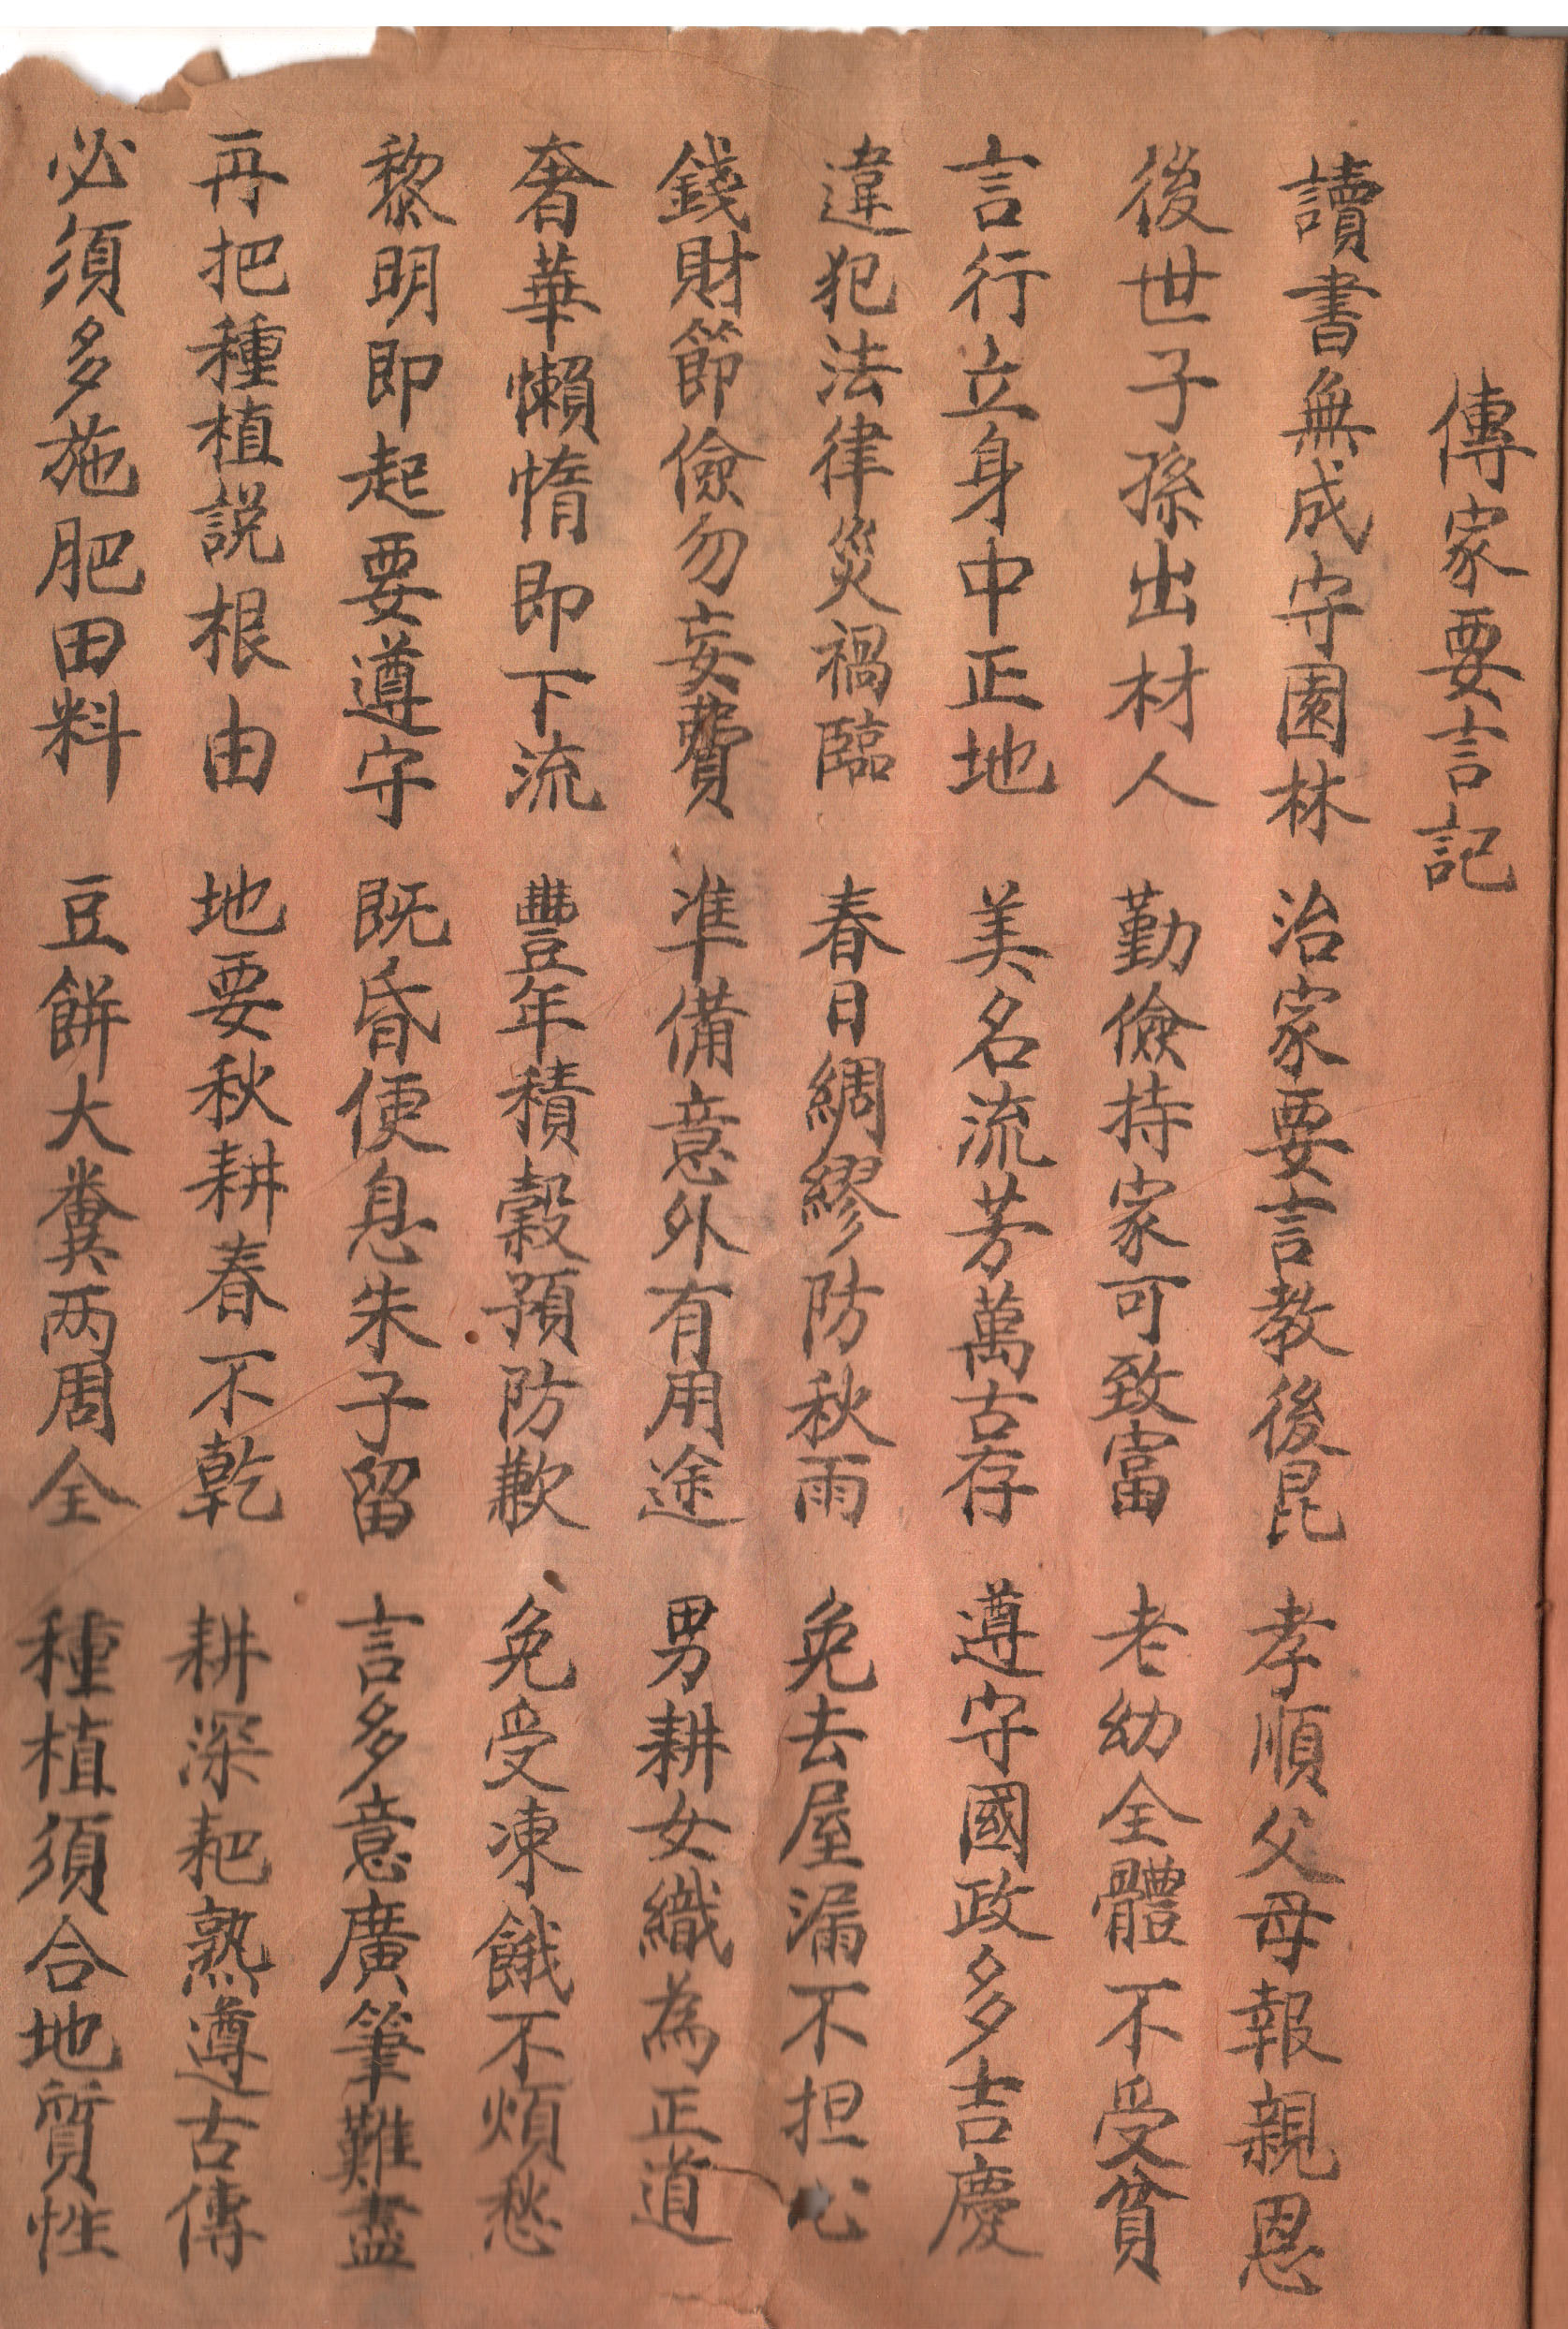 傳家要言記
讀書無成守園林　治家要言教後昆　孝順父母報親恩
後世子孫出材人　勤儉持家可致富　老幼全體不受貧
言行立身中正地　美名流芳萬古存　遵守國政多吉慶
違犯法律災禍臨　春日綢繆防秋雨　免去屋漏不担心
錢財節儉勿妄費　準備意外有用途　男耕女織為正道
奢華懶惰即下流　豐年積穀預防歉　免受凍餓不煩愁
黎明即起要遵守　既昏便息朱子留　言多意廣筆難盡
再把種植説根由　地要秋耕春不乾　耕深耙熟遵古傳
必須多施肥田料　豆餅大糞两周全　種植須合地質性